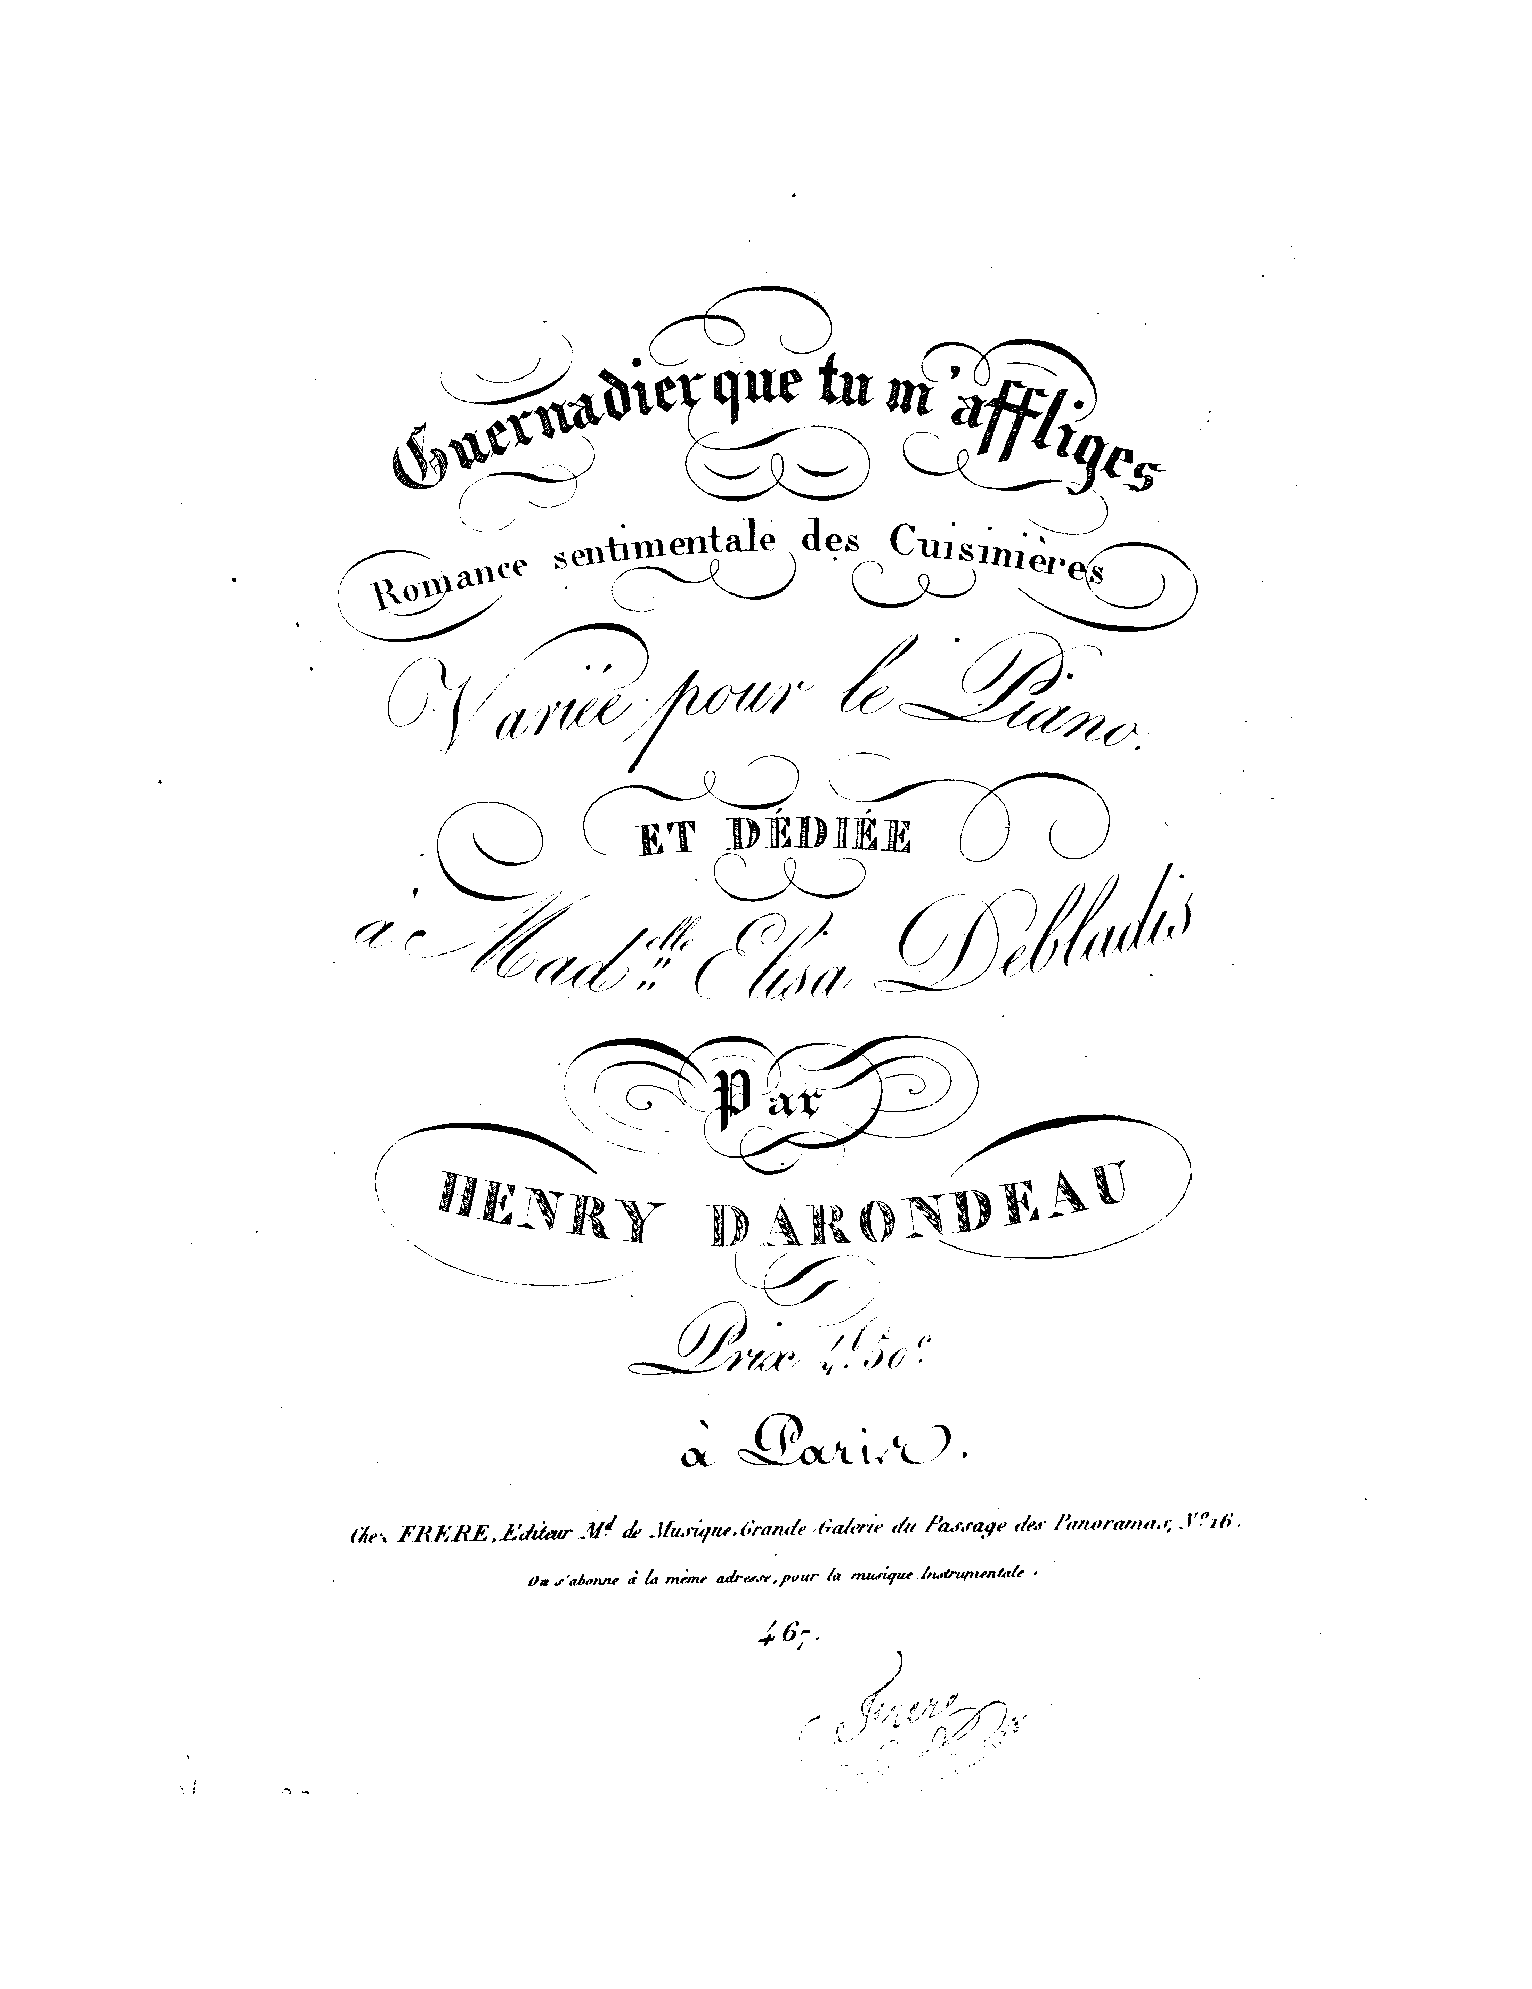 Guernadier que tu m'affliges
Romance sentimentale des Cuisinières
Variée pour le Piano.
ET DÉDIÉE
à Mad.elle Elisa Debladis
Par
HENRY DARONDEAU
Prix 4f. 50c.
à Paris.
Chez FRERE, Editeur Md de Musique, Grande Galerie du Passage des Panoramas, No 16.
On s'abonne à la même adresse, pour la musique Instrumentale.
467.
Frere